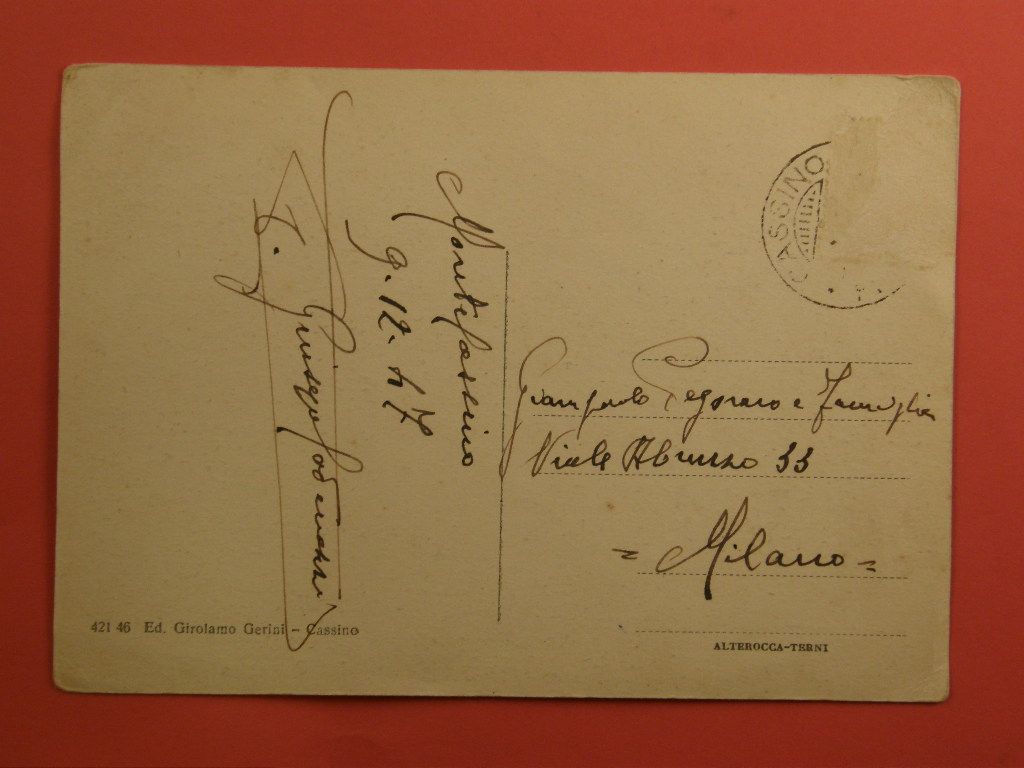 Montecassino
9.12.47
CASSINO
Giampaolo Pegoraro e Famiglia
Viale Abruzzo 33
= Milano =
421 46 Ed. Girolamo Gerini - Cassino
ALTEROCCA-TERNI